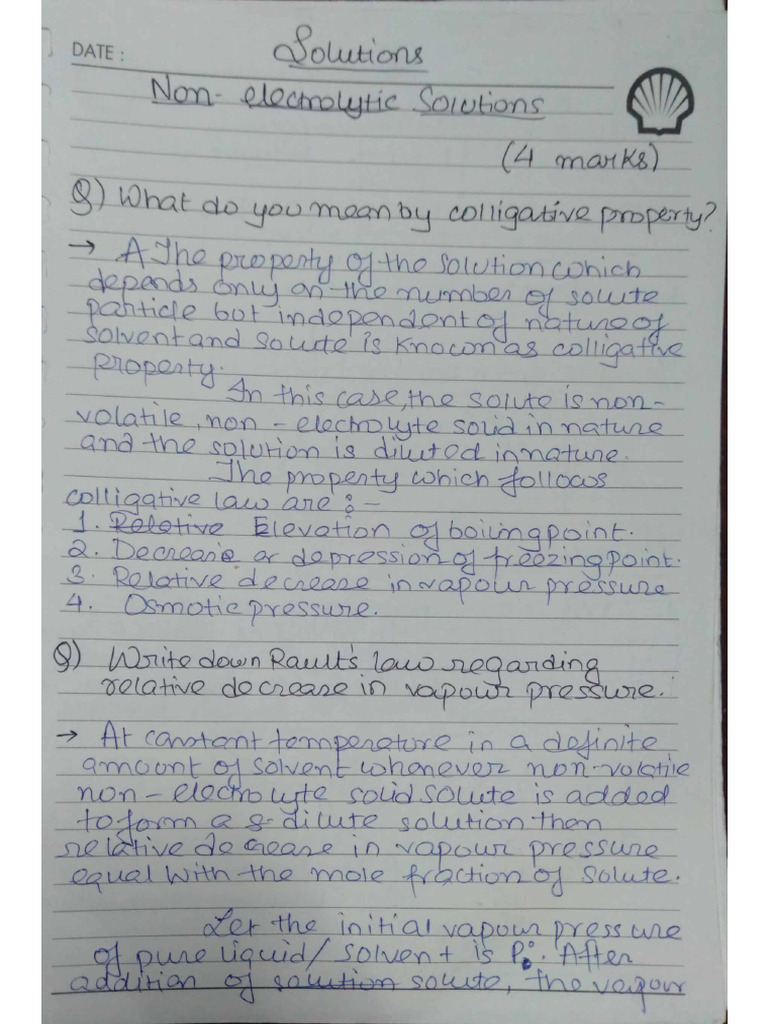 DATE :
Solutions
Non- electrolytic Solutions
(4 marks)
Q) What do you mean by colligative property?
→ A The property of the solution which
depends only on the number of solute
particle but independent of nature of
solvent and solute is known as colligative
property.
In this case, the solute is non-
volatile, non - electrolyte solid in nature
and the solution is diluted in nature.
The property which follows
colligative law are :-
1. Relative Elevation of boiling point.
2. Decrease or depression of freezing point.
3. Relative decrease in vapour pressure
4. Osmotic pressure.
Q) Write down Rault's law regarding
relative decrease in vapour pressure.
→ At constant temperature in a definite
amount of solvent whenever non-volatile
non - electrolyte solid solute is added
to form a s- dilute solution then
relative decrease in vapour pressure
equal with the mole fraction of solute.
Let the initial vapour pressure
of pure liquid/ solvent is P₀. After
addition of solution solute, the vapour